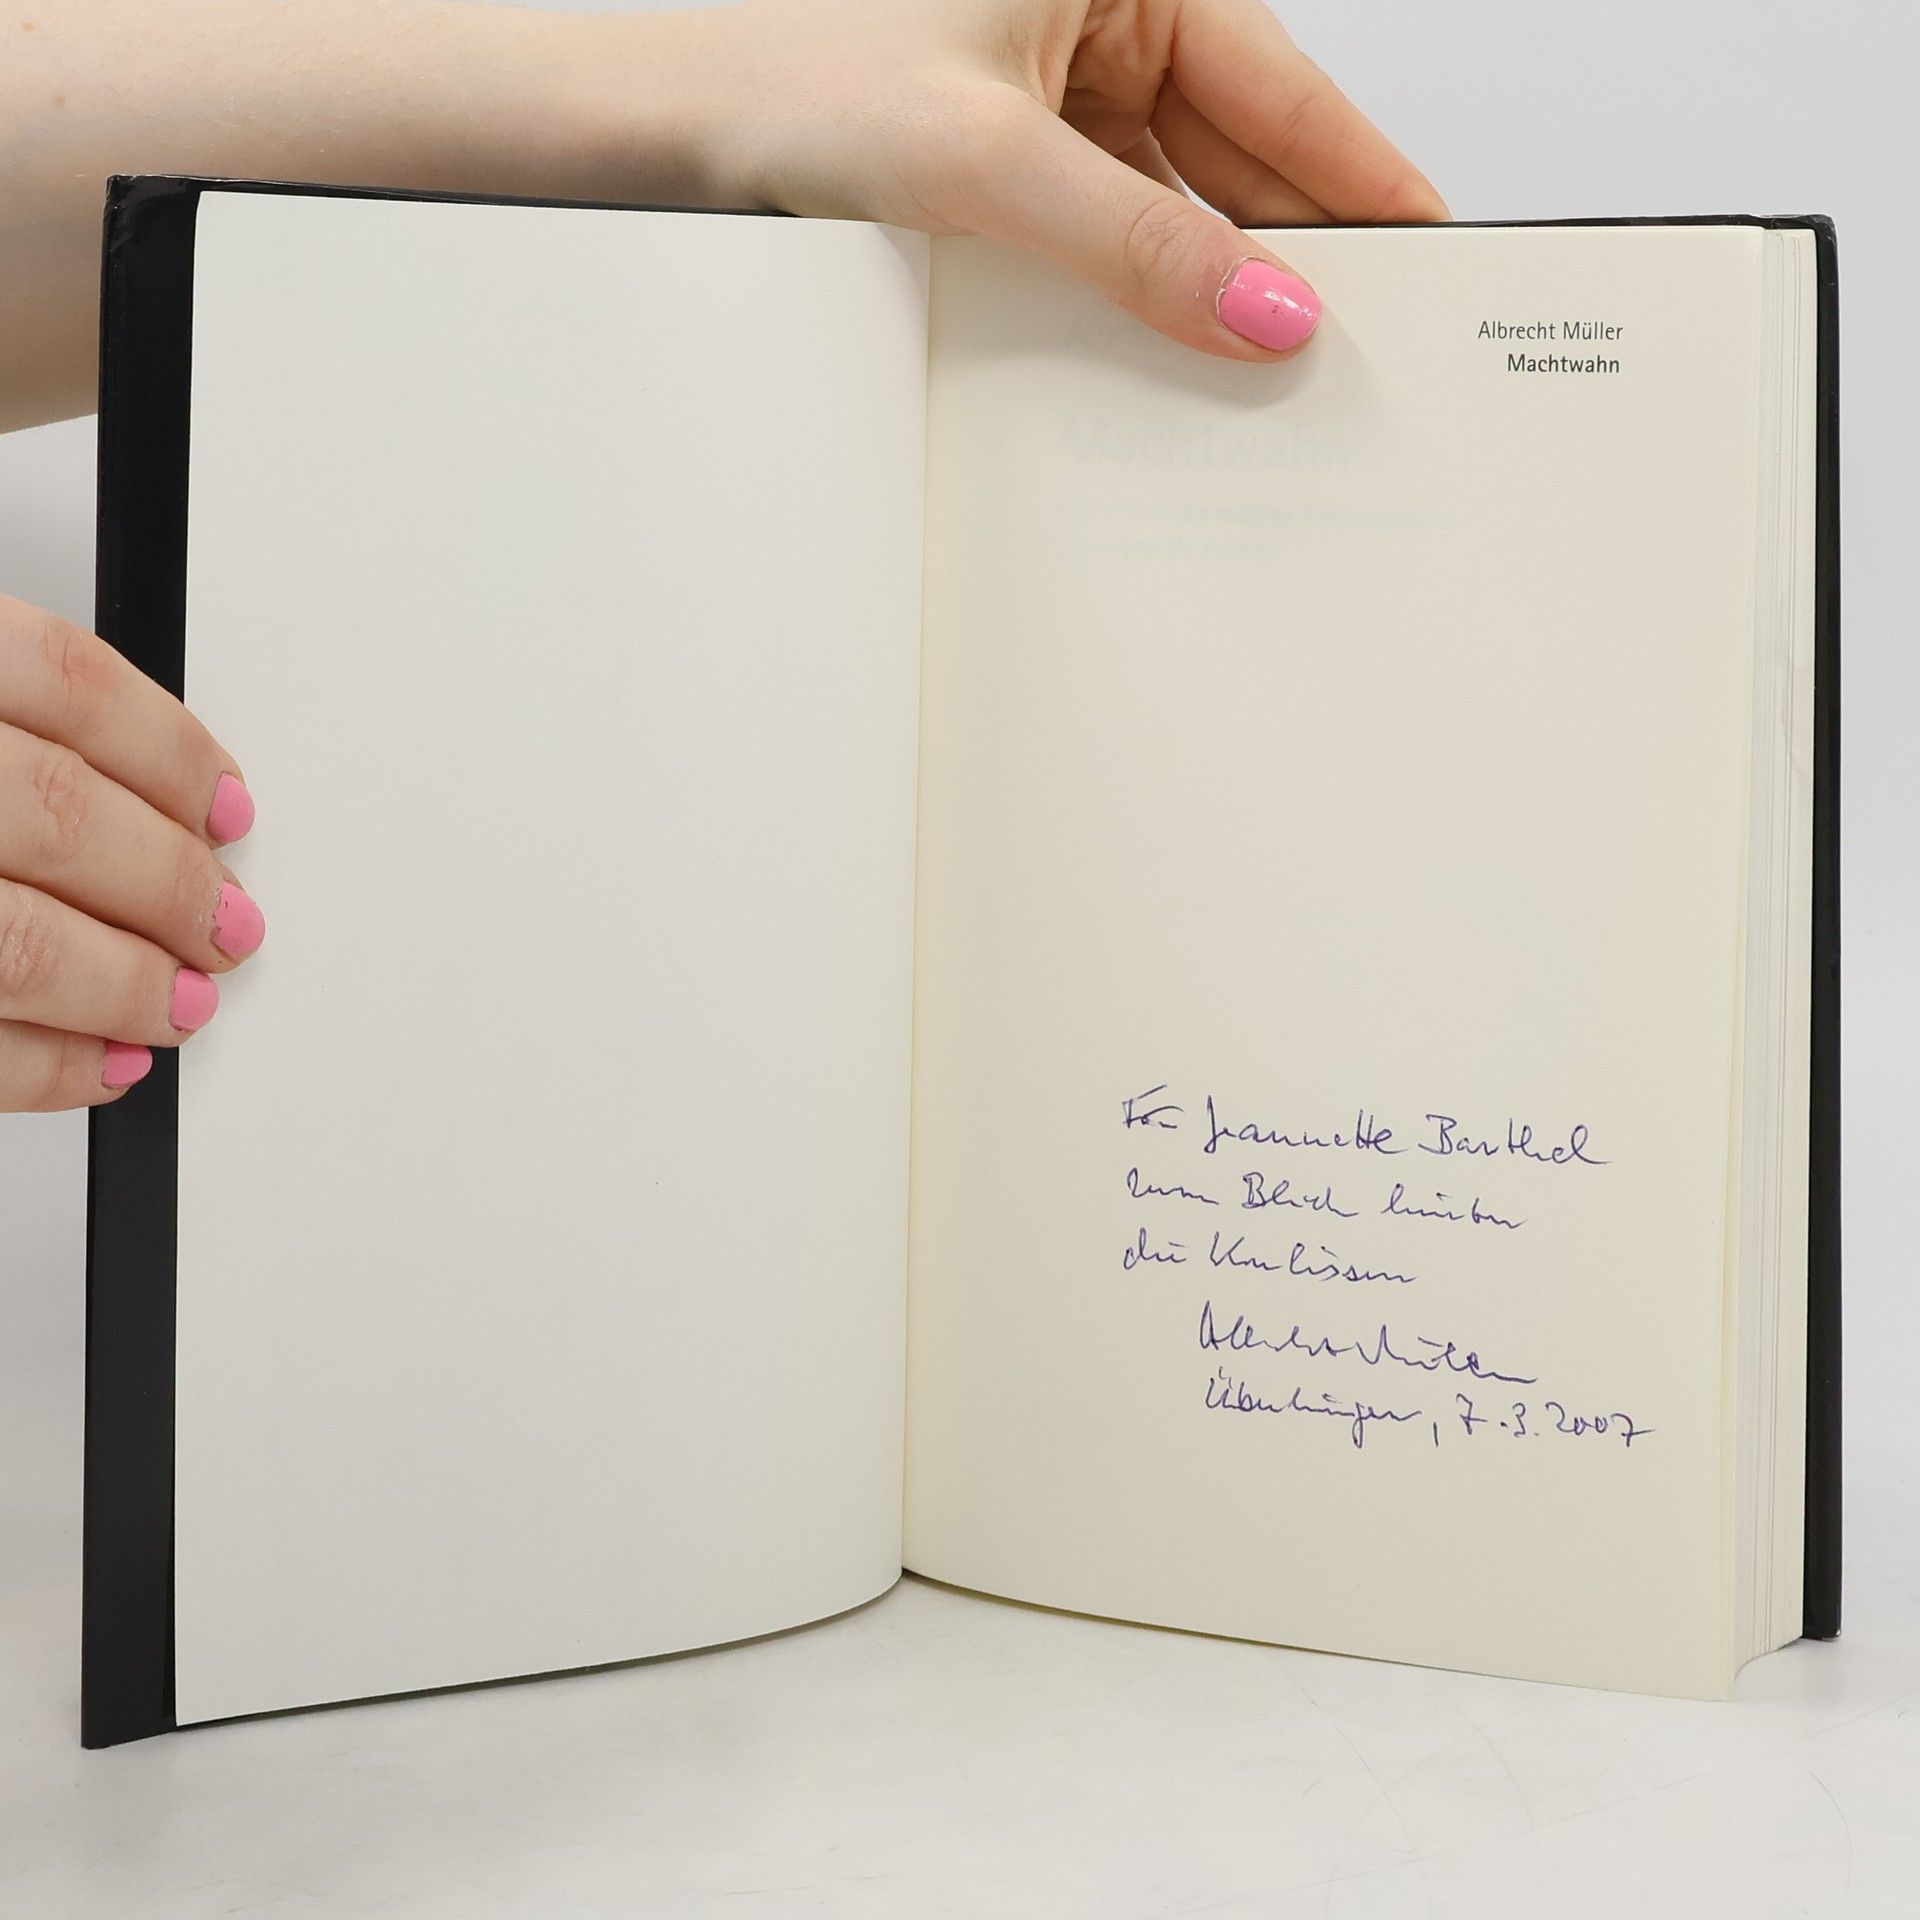 Albrecht Müller
Machtwahn
Machtwahn
Für Jeannette Barthel
zum Blick hinter
die Kulissen
Albrecht Müller
Überlingen, 7.3.2007